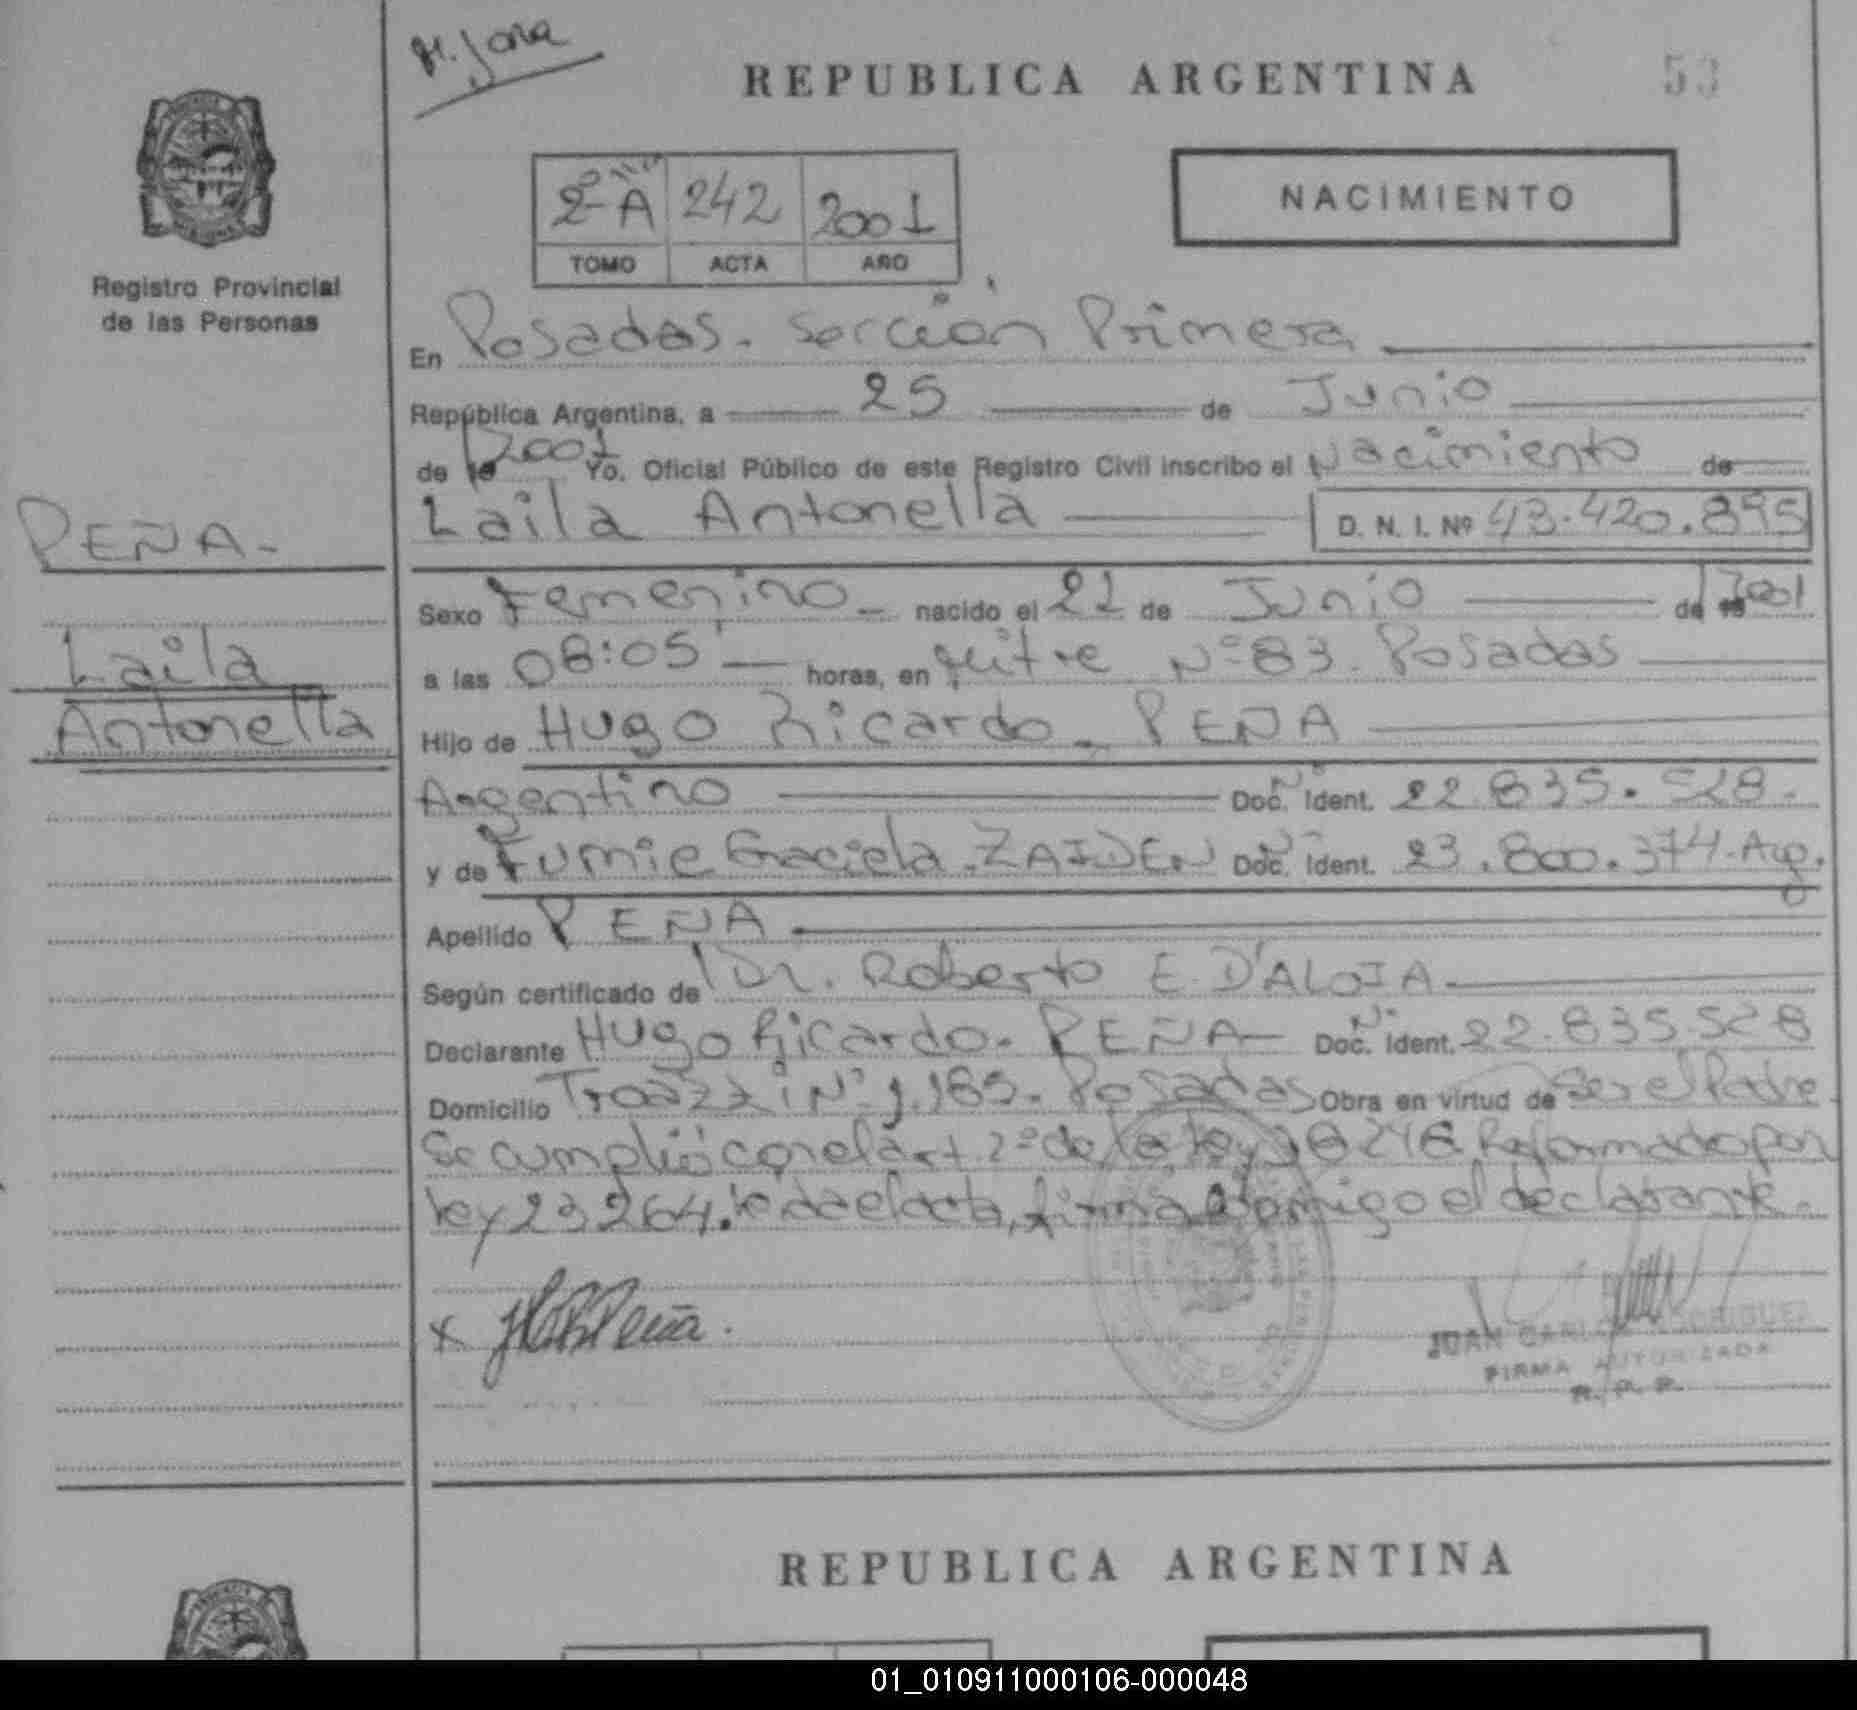 M. Jona
REPUBLICA ARGENTINA
53
Registro Provincial
de las Personas
2º A 242 2001
TOMO ACTA AÑO
NACIMIENTO
En Posadas. Sección Primera
República Argentina, a 25 de Junio
de 19 2001 Yo. Oficial Público de este Registro Civil inscribo el Nacimiento de
Laila Antonella D. N. I. Nº 43.420.895
PEÑA-
Laila
Antonella
Sexo Femenino nacido el 22 de Junio de 19 2001
a las 08:05' horas, en Mitre Nº 83. Posadas
Hijo de Hugo Ricardo PEÑA
Argentino Doc. Nº Ident. 22.835.528.
y de Fumie Graciela ZAIDEN Doc. Nº Ident. 23.800.374. Arg.
Apellido PEÑA
Según certificado de Dr. Roberto E. D'ALOIA.
Declarante Hugo Ricardo. PEÑA Doc. Nº Ident. 22.835.528
Domicilio Nº 1.185. Posadas Obra en virtud de Ser el Padre
Se cumplió con el art. 2º de la ley 18248 Reformado por
ley 23264. leída el acta, firma conmigo el declarante.
x Peña.
JUAN CARLOS RODRIGUEZ
FIRMA AUTORIZADA
R. P. P.
REPUBLICA ARGENTINA
01_010911000106-000048